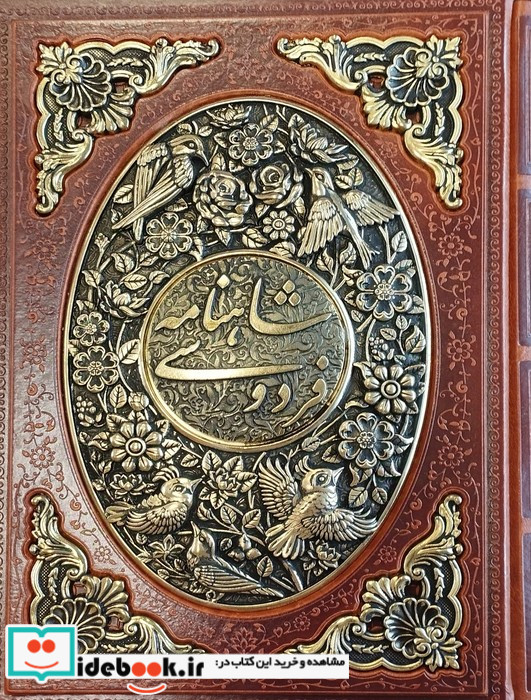 شاهنامه
فردوسی
مشاهده و خرید این کتاب در:
idebook.ir